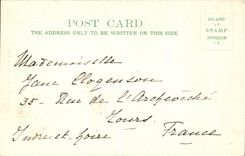 POST CARD
THE ADDRESS ONLY TO BE WRITTEN ON THIS SIDE.
INLAND
STAMP
FOREIGN
Mademoiselle
Jane Clogenson
35 - Rue de l'Archevêché
Tours.
Indre et Loire France